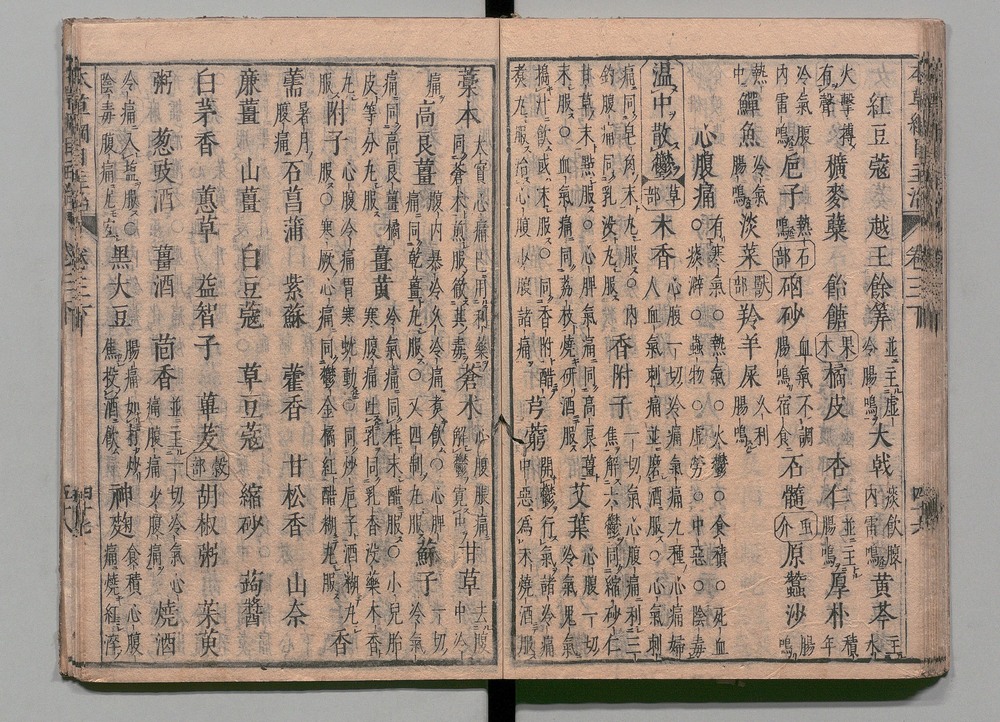 紅豆蔻　越王餘筭　並主虛冷腸鳴　大戟　痰飲腹內雷鳴　黃芩　主水
火擊搏有聲　穬麥蘖　飴餹　果木　橘皮　杏仁　並主腸鳴　厚朴　積年
冷氣腹內雷鳴　巵子　熱鳴　石部　硇砂　血氣不調腸鳴宿食　石髓　蟲介　原蠶沙　腸鳴
熱中　鱓魚　冷氣腸鳴　淡菜　獸部　羚羊屎　久利腸鳴
心腹痛　有寒氣○熱氣○火鬱○食積○死血○痰澼○蟲物○虛勞○中惡○陰毒
温中散鬱　草部　木香　心腹一切冷痛氣痛九種心痛婦人血氣刺痛並磨酒服○心氣刺
痛同皂角末丸服○內釣腹痛同乳没丸服　香附子　一切氣心腹痛利三焦解六鬱同縮砂仁
甘草末點服○心脾氣痛同高良薑末服○血氣痛同荔枝燒研酒服　艾葉　心腹一切冷氣鬼氣
搗汁飲或末服○同香附醋煮丸服治心腹少腹諸痛　芎藭　開鬱行氣諸冷痛中惡爲末燒酒服
藁本　大實心痛已用利藥同蒼术煎服徹其毒　蒼术　心腹脹痛解鬱寛中　甘草　去腹中冷
痛　高良薑　腹內暴冷久冷痛煮飲○心脾痛同乾薑丸服○又四制丸服　蘇子　一切冷氣
痛同高良薑橘皮等分丸服　薑黃　冷氣痛同桂末醋服○小兒胎寒腹痛吐乳同乳香没藥木香
丸服　附子　心腹冷痛胃寒蚘動同炒巵子酒糊丸服○寒厥心痛同鬱金橘紅醋糊丸服　香
薷　暑月腹痛　石菖蒲　紫蘇　藿香　甘松香　山柰
廉薑　山薑　白豆蔻　草豆蔻　縮砂　蒟醬
白茅香　蕙草　益智子　蓽茇　穀部　胡椒粥　茱萸
粥　葱豉酒　薑酒　茴香　並主一切冷氣心痛腹痛心腹痛　燒酒
冷痛入鹽服○陰毒腹痛尤宜　黑大豆　腸痛如打炒焦投酒飲　神麴　食積心腹痛燒紅淬